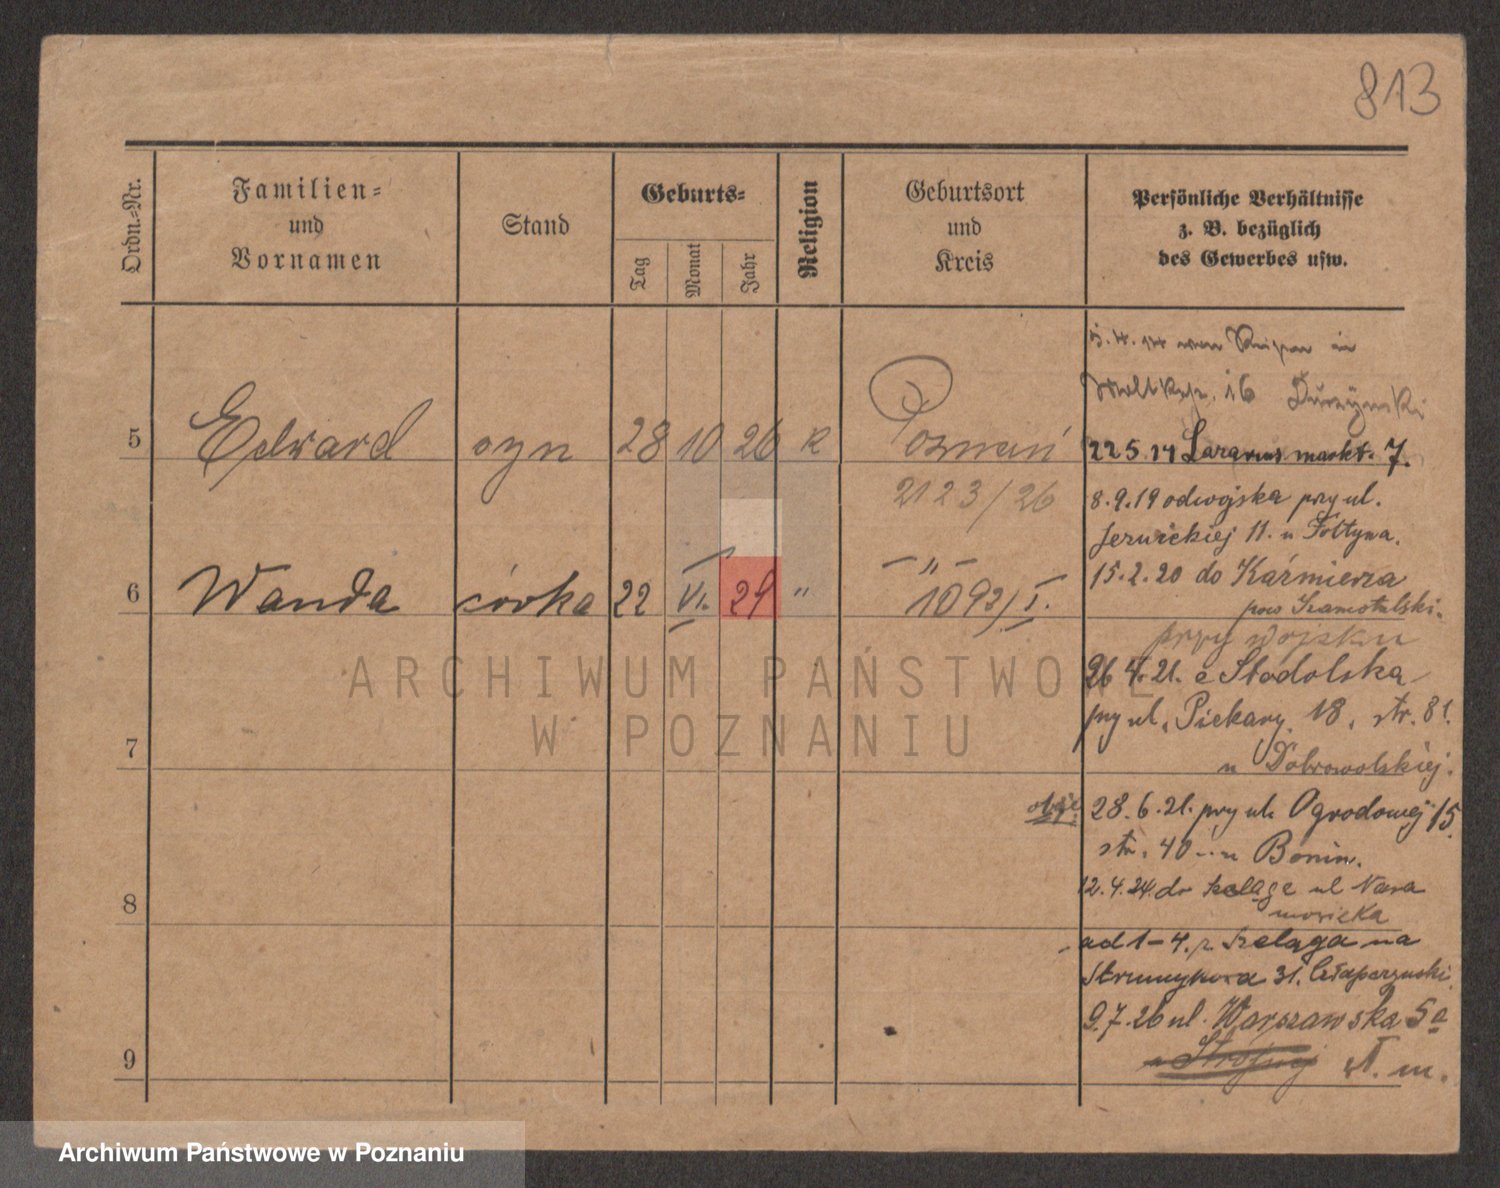 813
Ordn.=Nr.
Familien=
und
Vornamen
Stand
Geburts=
Tag
Monat
Jahr
Religion
Geburtsort
und
Kreis
Persönliche Verhältnisse
z. B. bezüglich
des Gewerbes usw.
in
16
5 Edward syn 28 10 26 K Poznań
2123/26
22 5 14 Lazarus markt. 7.
8.9.19 od wojska przy ul.
11. u
6 Wanda córka 22 VI. 29 " — " —
1092/I.
15.2.20 do Kaźmierza
pow Szamotulski.
przy wojsku
26 4. 21. Stodolska
przy ul. Piekary 18. str. 81.
7
u Dobrowolskiej.
28.6.21. przy ul. Ogrodowej 15
str. 40 u Bonin.
12.4.24. do ul Nara
mowicka
8
ad 1–4. z Szeląga na
Strumykowa 31.
9.7.26 ul. Warszawska 5a
9
N. m.
ARCHIWUM PAŃSTWOWE
W POZNANIU
Archiwum Państwowe w Poznaniu